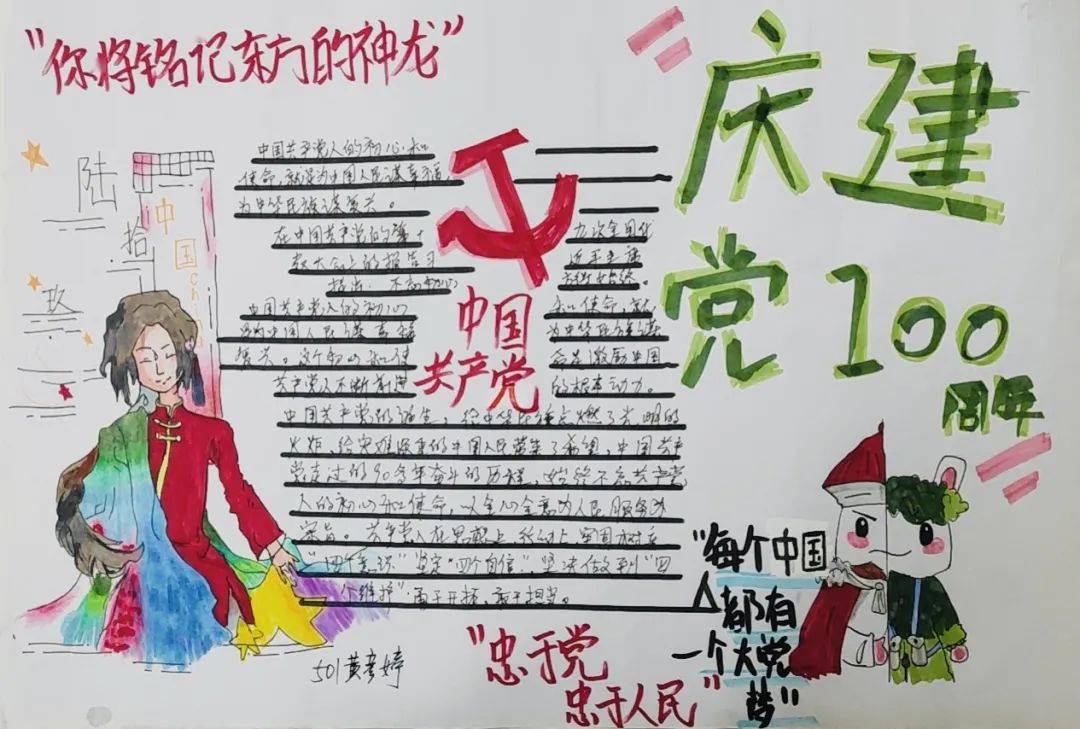 "你将铭记东方的神龙"
庆建
党100
周年
陆
拾
玖
中
国
中国共产党人的初心和
使命,就是为中国人民谋幸福
为中华民族谋复兴。
在中国共产党的第十 九次全国代
表大会上的报告习 近平主席
指出:不忘初心 方得始终。
中国共产党人的初心 和使命,就
是为中国人民谋幸福 为中华民族谋
复兴。这个初心和使 命是激励中国
共产党人不断前进 的根本动力。
中国
共产党
中国共产党的诞生,给中华民族点燃了光明的
火炬,给灾难深重的中国人民带来了希望,中国共产
党走过的90多年奋斗的历程,始终不忘共产党
人的初心和使命,以全心全意为人民服务为
宗旨。共产党人在思想上、行动上牢固树立
"四个意识"坚定"四个自信",坚决做到"四
个维护"勇于开拓,敢于担当。
501黄彦婷
"忠于党
忠于人民"
"每个中国
人都有
一个大党
梦"